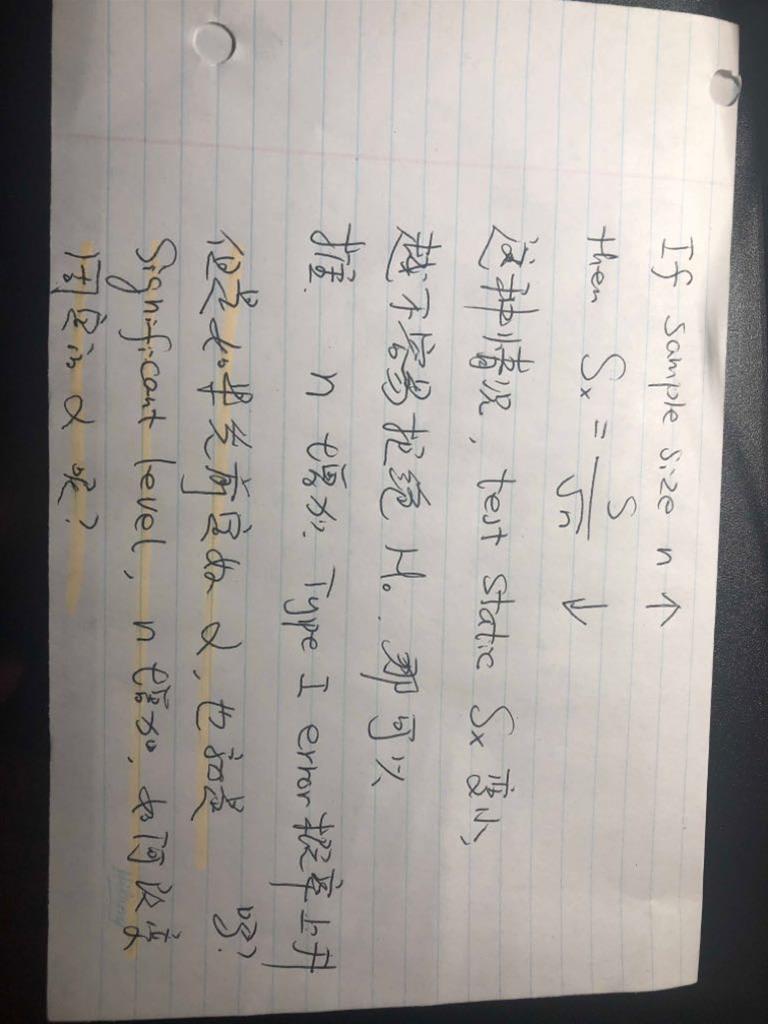 If sample size n ↑
then Sx = S/√n ↓
这种情况, test static Sx 变小,
越不容易拒绝 H0. 那可以
推 n 增加, Type I error 概率上升
吗?
但是如果先商定好 α, 也就是
Significant level, n 增加, 如何改变
固定的 α 呢?